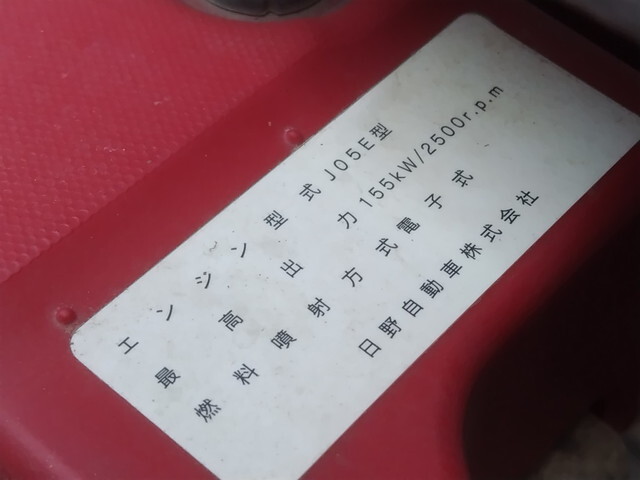 エンジン型式 J05E型
最高出力 155kW/2500r.p.m
燃料噴射方式 電子式
日野自動車株式会社